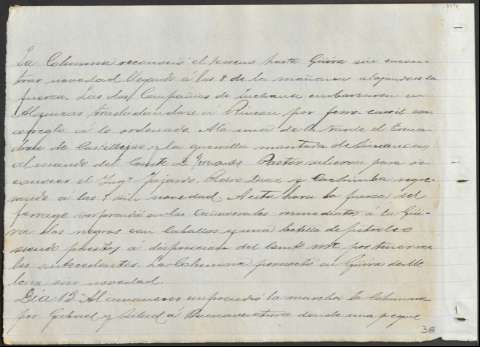 La Columna reconoció el terreno hasta Güira sin encon-
trar novedad llegando á las 8 de la mañana alojandose la
fuerza. Las dos Compañias de Luchana embarcaron en
Alquizar trasladandose á Rincon por ferro carril con
arreglo á lo ordenado. A la una de la tarde el
de y la guerrilla montada de
al mando del Comte D. Pastor salieron para re-
conocer el Ingo Fajardo, y Cachimba regre-
sando á las sin novedad. A esta hora la fuerza del
forrage sorprendió en los cañaverales inmediatos á la Güi-
ra dos negros con caballos y una botella de petroleo
siendo puestos á disposicion del Comte Mtr por tener ma-
los antecedentes. La Columna pernoctó en Güira de Me-
lena sin novedad.
Dia 12. Al amanecer emprendió la marcha la Columna
por Gabriel y Salud á Buenaventura donde una pequeñ
38